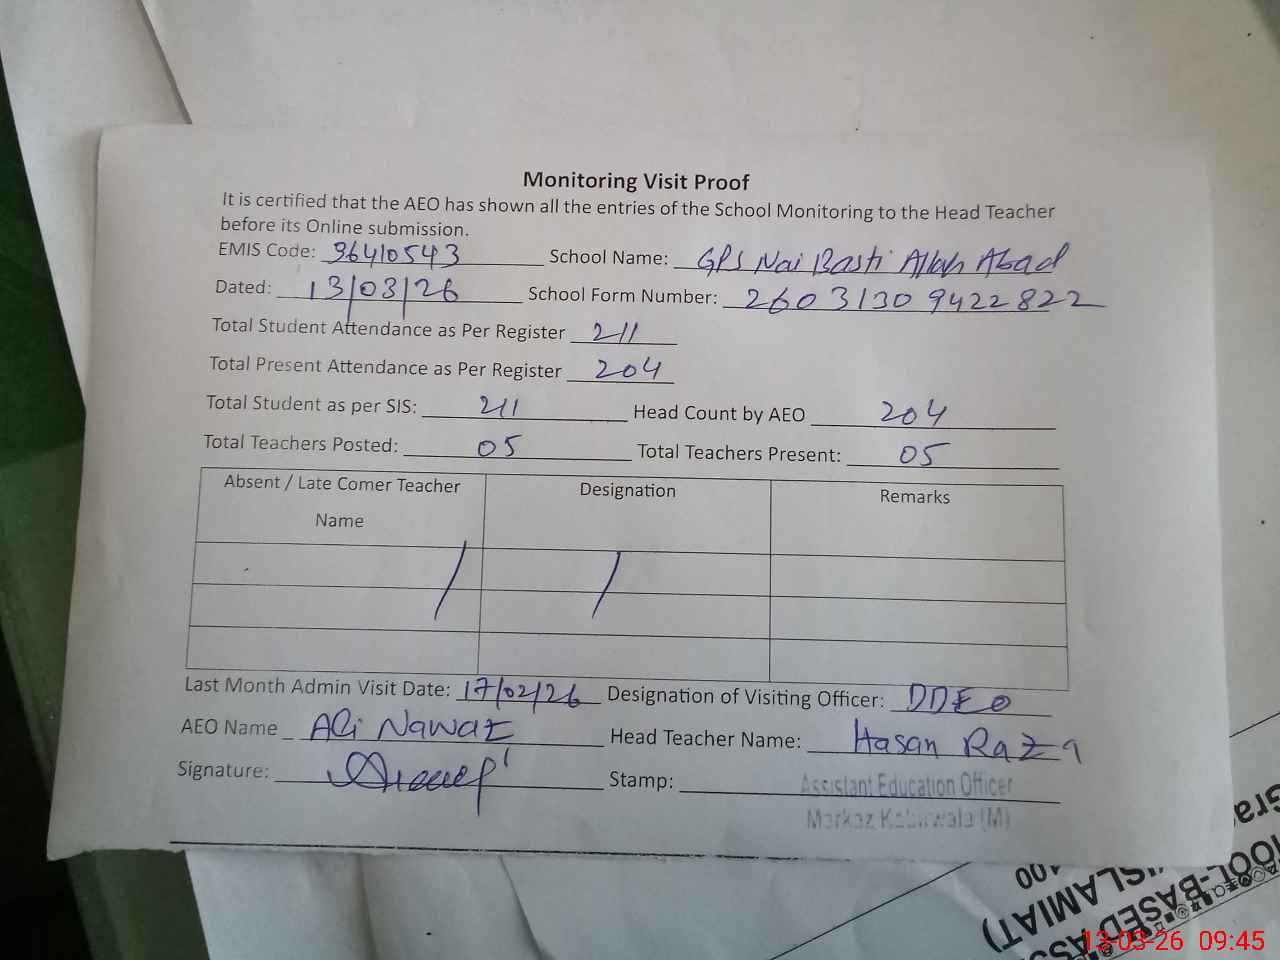 Monitoring Visit Proof
It is certified that the AEO has shown all the entries of the School Monitoring to the Head Teacher
before its Online submission.
EMIS Code: 36410543 School Name: GPS Nai Basti Allah Abad
Dated: 13/03/26 School Form Number: 26031309422822
Total Student Attendance as Per Register 211
Total Present Attendance as Per Register 204
Total Student as per SIS: 211 Head Count by AEO 204
Total Teachers Posted: 05 Total Teachers Present: 05
Absent / Late Comer Teacher Name Designation Remarks
Last Month Admin Visit Date: 17/02/26 Designation of Visiting Officer: DDEO
AEO Name Ali Nawaz Head Teacher Name: Hasan Raza
Signature: Stamp: Assistant Education Officer
Markaz Kabirwala (M)
13-03-26 09:45